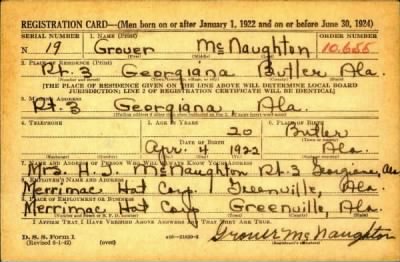 REGISTRATION CARD—(Men born on or after January 1, 1922 and on or before June 30, 1924)
SERIAL NUMBER 1. NAME (Print) ORDER NUMBER
N 19 Grover McNaughton 10,655
(First) (Middle) (Last)
2. PLACE OF RESIDENCE (Print)
Rt. 3 Georgiana Butler Ala.
(THE PLACE OF RESIDENCE GIVEN ON THE LINE ABOVE WILL DETERMINE LOCAL BOARD
JURISDICTION; LINE 2 OF REGISTRATION CERTIFICATE WILL BE IDENTICAL)
3. MAILING ADDRESS
Rt 3 Georgiana Ala.
4. TELEPHONE 5. AGE IN YEARS 6. PLACE OF BIRTH
20 Butler
DATE OF BIRTH
Apr. 4 1922 Ala.
7. NAME AND ADDRESS OF PERSON WHO WILL ALWAYS KNOW YOUR ADDRESS
Mrs. H. J. McNaughton Rt. 3 Georgiana, Ala
8. EMPLOYER'S NAME AND ADDRESS
Merrimac Hat Corp. Greenville, Ala.
9. PLACE OF EMPLOYMENT OR BUSINESS
Merrimac Hat Corp Greenville, Ala.
I AFFIRM THAT I HAVE VERIFIED ABOVE ANSWERS AND THAT THEY ARE TRUE.
D. S. S. Form 1
(Revised 6-1-42) (over) Grover McNaughton
(Registrant's signature)